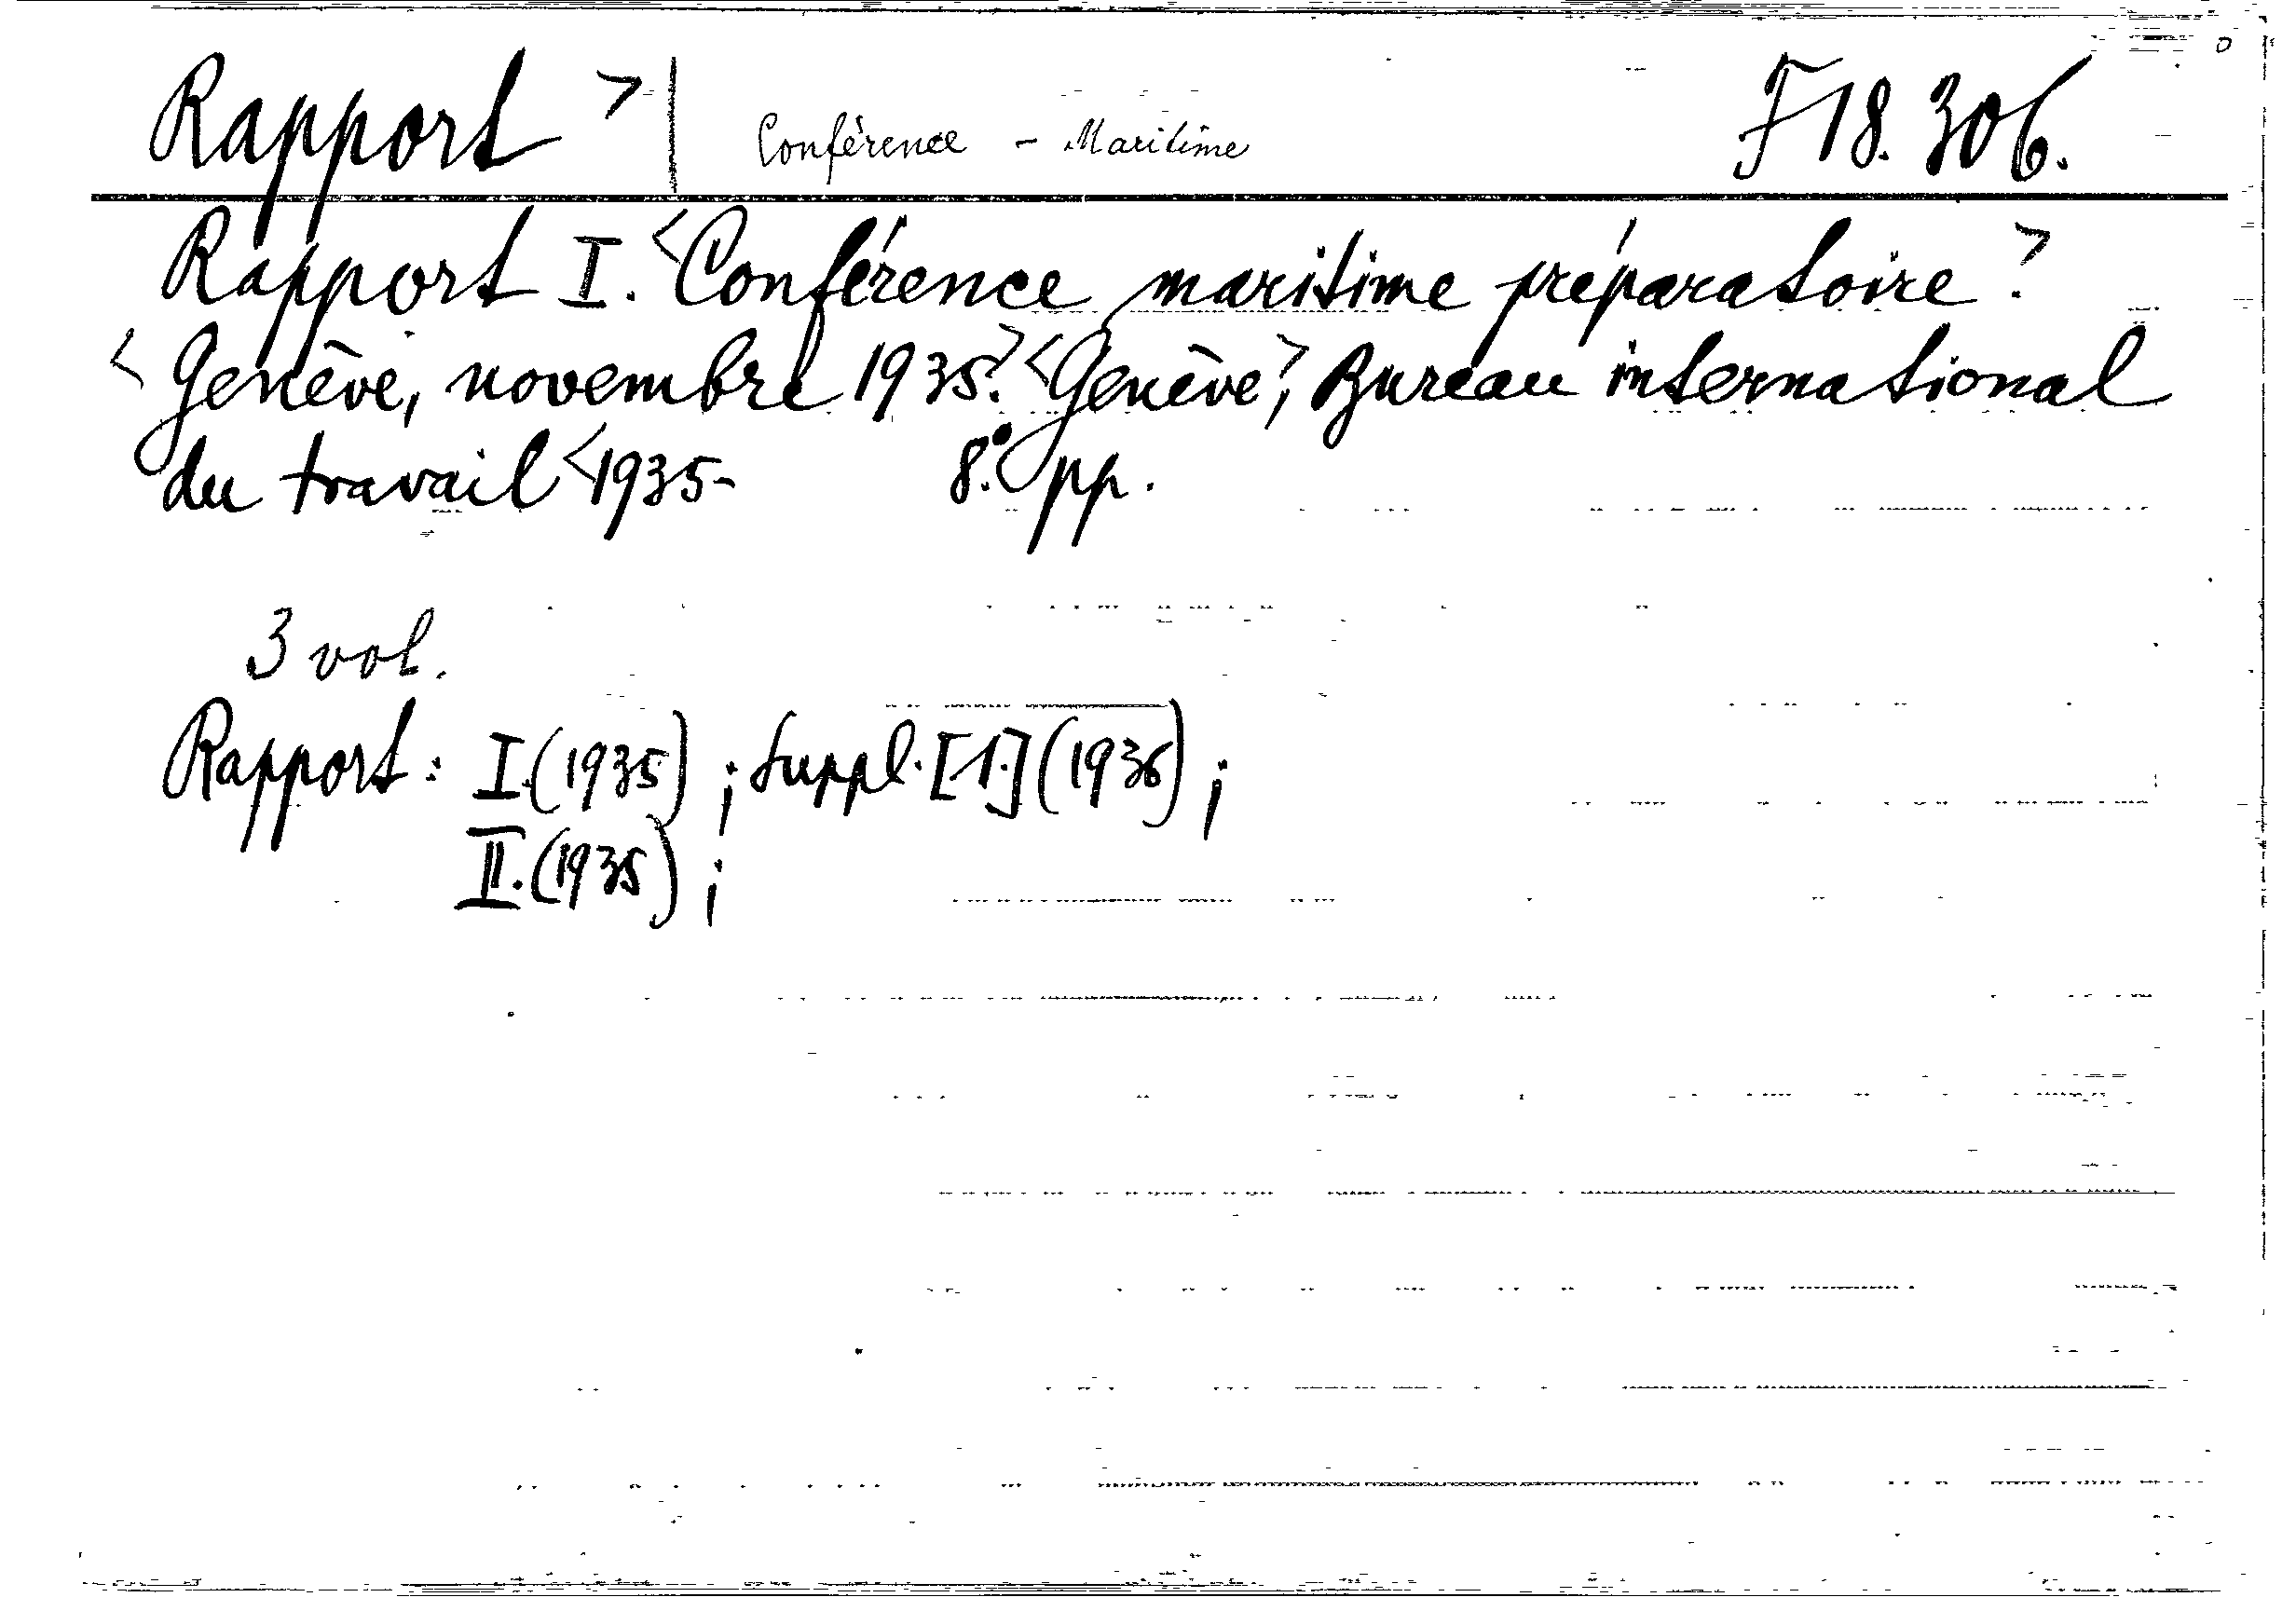 Rapport > | Conférence - Maritime F 18.306.
Rapport I. <Conférence maritime préparatoire>.
<Genève, novembre 1935>. <Genève>, Bureau international
du travail <1935- 8.° pp.
3 vol.
Rapport: I.(1935) ; Suppl. [1.] (1936) ;
II.(1935) ;